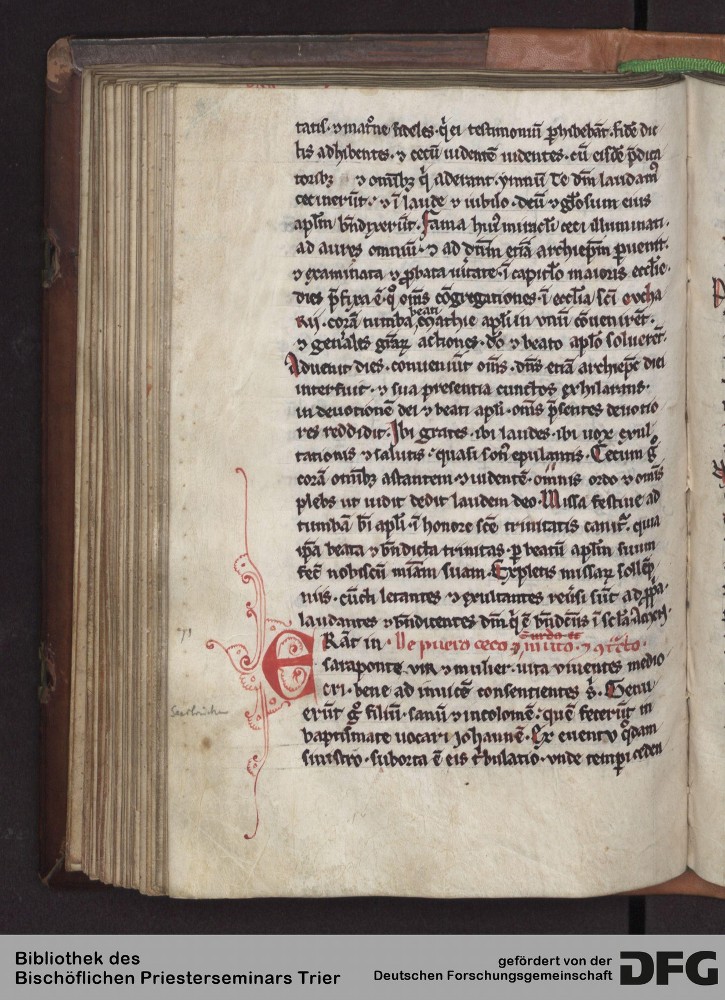 tatis · ⁊ mat͛ne fideles · q̇ ei testimoniū ꝑhibebāt · fidē dic
tis adhibentes · ⁊ cecū uidentē uidentes · cū eisdē p̄dica
toribꝫ ⁊ om̄ibꝫ q̇ aderant · ymnū Te dm̄ laudamꝰ
cecinerūt · ⁊ ī laude ⁊ iubilo · deū ⁊ gl̓osum eius
apl̓m bn̄dixerūt · Fama huiꝰ
ad aures omniū · ⁊ ad dn̄m etiā archiep̄m ꝑuenit ·
⁊ examinata ⁊ ꝓbata ueritate · ī capitl̓o maioris eccl̓ie ·
dies p̄fixa ē · qͦ om̄s cōgregationes · ī eccl̓ia sc̄i eucha
rii · corā tumba beati mathie apl̓i in unū cōuenirēt ·
⁊ gen͛ales gr̄aꝝ actiones · dō ⁊ beato apl̓o soluerēt ·
Aduenit dies · conueniūt om̄s · dn̄s etiā archiep̄c diei
interfuit · ⁊ sua presentia cunctos exhilarans ·
in deuotionē dei ⁊ beati apl̓i · om̄s p̄sentes deuotio
res reddidit · Ibi grates · ibi laudes · ibi uox exul
tationis ⁊ salutis · quasi son͛ epulantis · Cecum gͦ
corā om̄ibꝫ astantem ⁊ uidentē · omnis ordo ⁊ om̄is
plebs ut uidit dedit laudem deo · Missa festiue ad
tumbā bī apl̓i · ī honore sc̄e trinitatis canit᷑ · quia
ip̄a beata ⁊ bn̄dicta trinitas · ꝑ beatū apl̓m suum
fec̄ nobiscū mīam suam · Expletis missaꝝ sollēp
niis · cūcti letantes ⁊ exultantes reu͛si sūt ad ꝓpͥa ·
laudantes ⁊ bn̄dicentes dm̄ · q̇ ē bn̄dictus ī scl̓a · Amen ·
ERāt in · De puero ceco surdo et ⁊ muto · ⁊ ꝯtͣcto ·
saraponte uir ⁊ mulier · uita uiuentes medio
cri · bene ad inuicē consentientes s͛ · Genu
erūt gͦ filiū · sanū ⁊ incolomē · quē fecerūt in
baptismate uocari iohannē · Ex euentu qͦdam
sinistro · suborta ē eis tͥbulatio · unde tempi ceden
Saarbrücken
Bibliothek des
Bischöflichen Priesterseminars Trier
gefördert von der
Deutschen Forschungsgemeinschaft
DFG